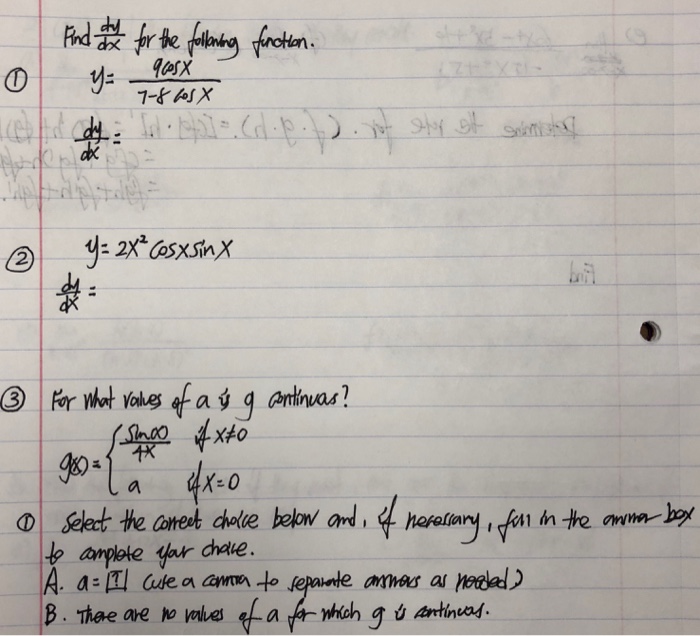 Find dy/dx for the following function.
① y = 9cosx / 7-8 cosx
dy/dx =
② y = 2x² cosx sinx
dy/dx =
Find
③ For what values of a is g continuas?
g(x) = { sin(x) / 4x if x≠0
a if x=0
① Select the correct choice below and, if necessary, fill in the answer box
to complete your choice.
A. a = [?] (use a comma to separate answers as needed)
B. There are no values of a for which g is continuas.